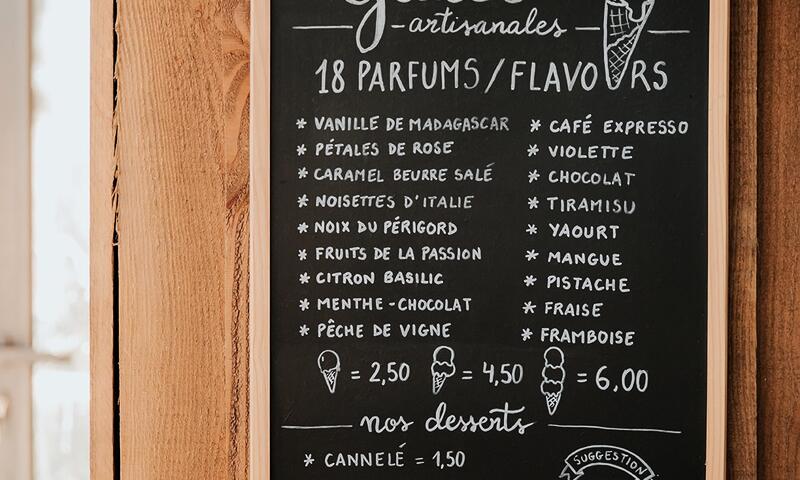 artisanales
18 PARFUMS/FLAVOURS
* VANILLE DE MADAGASCAR
* PÉTALES DE ROSE
* CARAMEL BEURRE SALÉ
* NOISETTES D'ITALIE
* NOIX DU PÉRIGORD
* FRUITS DE LA PASSION
* CITRON BASILIC
* MENTHE-CHOCOLAT
* PÊCHE DE VIGNE
* CAFÉ EXPRESSO
* VIOLETTE
* CHOCOLAT
* TIRAMISU
* YAOURT
* MANGUE
* PISTACHE
* FRAISE
* FRAMBOISE
= 2,50 = 4,50 = 6,00
nos desserts
* CANNELÉ = 1,50
SUGGESTION